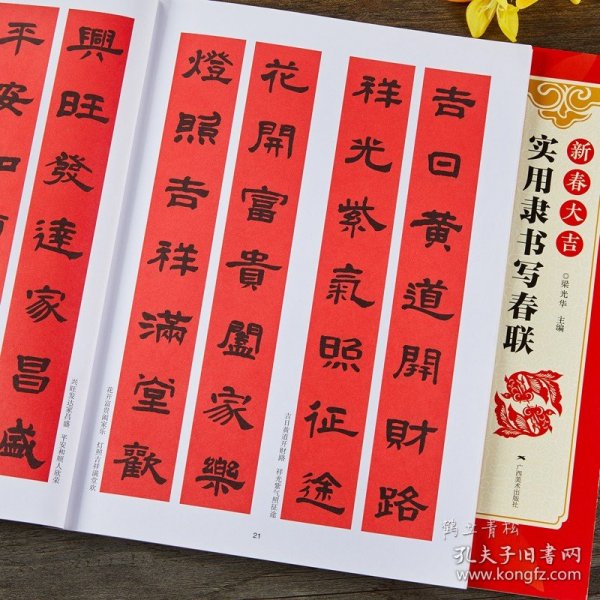 吉日黄道開財路
祥光紫氣照征途
吉日黄道开财路 祥光紫气照征途
花開富貴闔家樂
燈照吉祥滿堂歡
花开富贵阖家乐 灯照吉祥满堂欢
興旺發達家昌盛
平安和
兴旺发达家昌盛 平安和顺人欣荣
21
新春大吉
实用隶书写春联
◎梁光华 主编
广西美术出版社
鹤立青松
孔夫子旧书网
www.kongfz.com